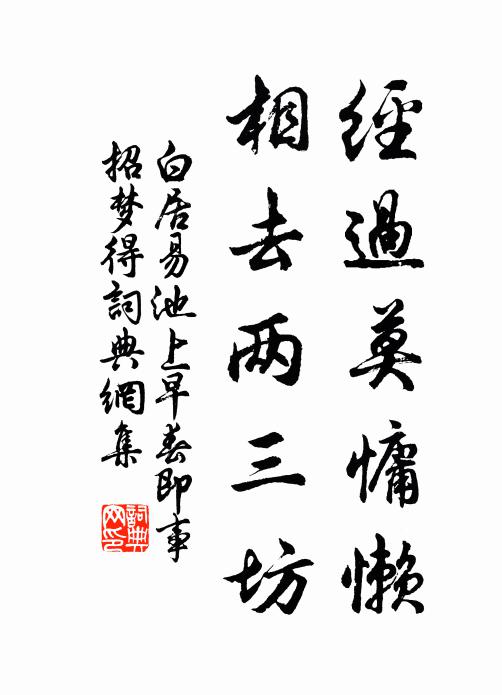 經過莫慵懶
相去两三坊
白居易池上早春即事
招梦得詞典網集
詞典网印